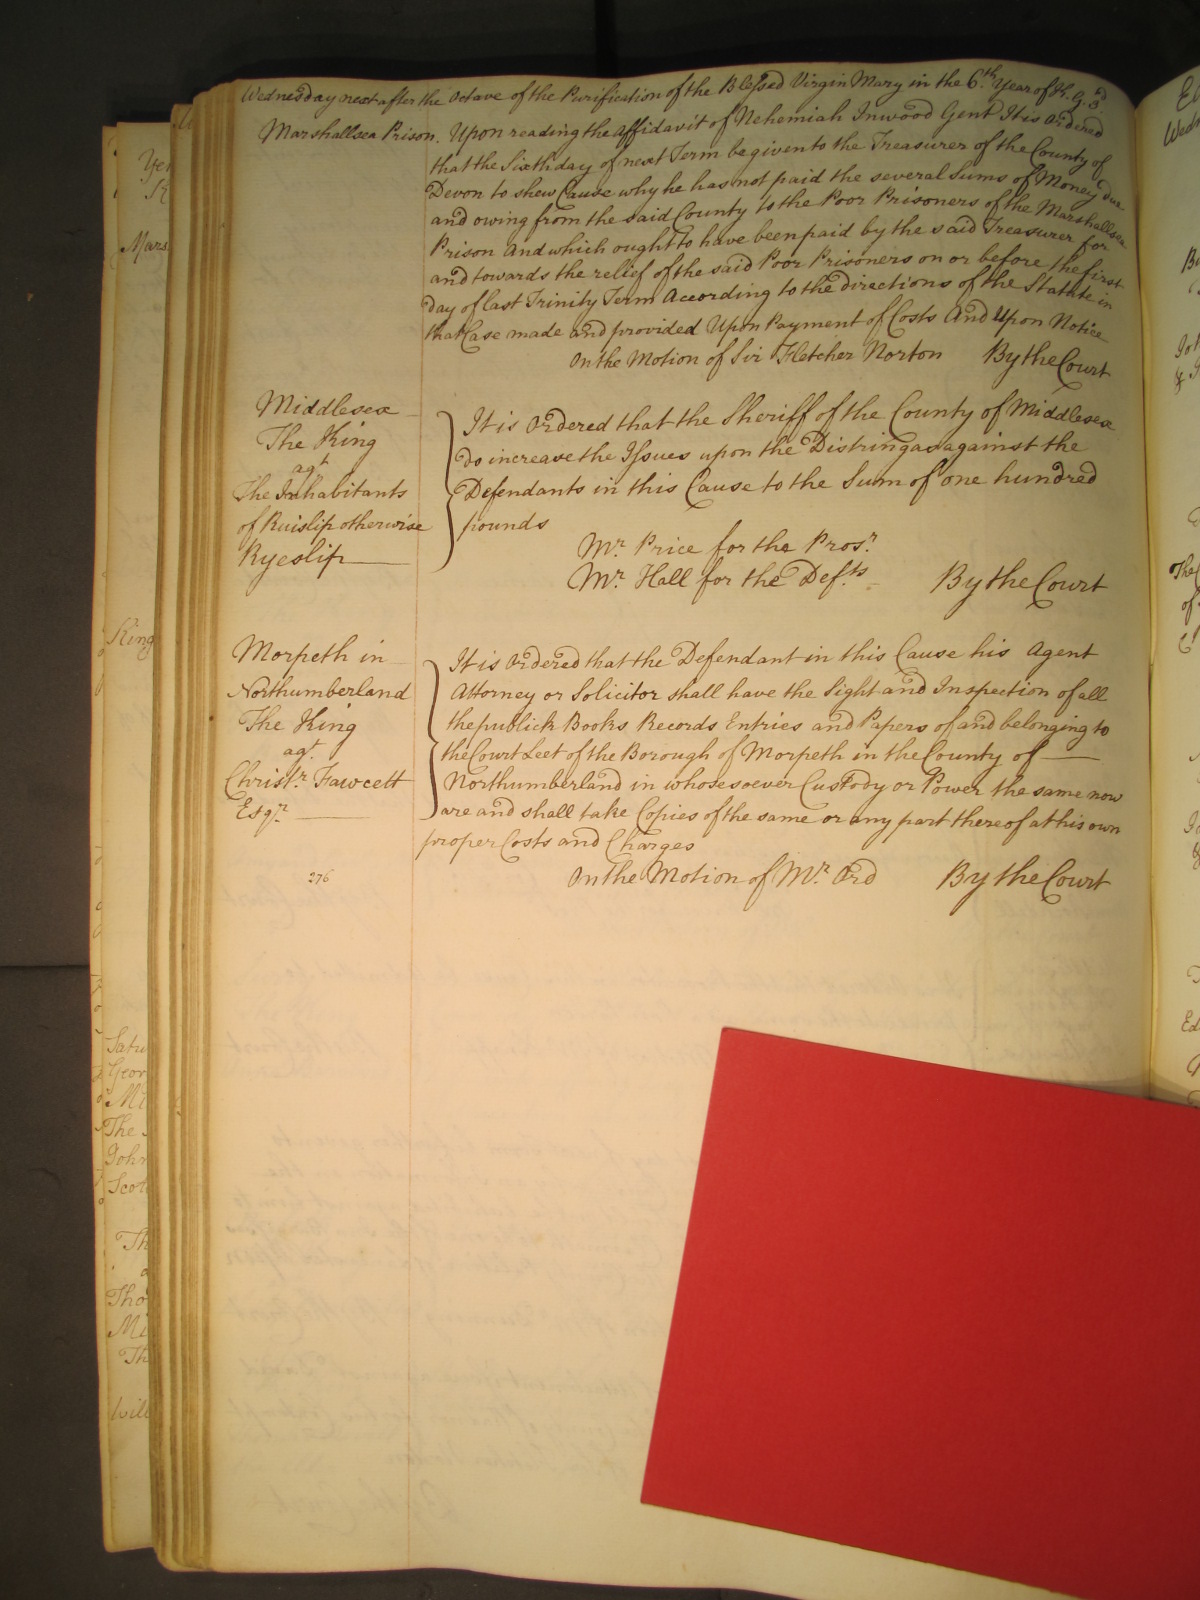 Wednesday next after the Octave of the Purification of the Blessed Virgin Mary in the 6th Year of K. G. 3d
Marshallsea Prison. Upon reading the Affidavit of Nehemiah Inwood Gent It is Ordered
that the Sixth day of next Term be given to the Treasurer of the County of
Devon to shew Cause why he has not paid the several Sums of Money due
and owing from the said County to the Poor Prisoners of the Marshallsea
Prison And which ought to have been paid by the said Treasurer for
and towards the relief of the said Poor Prisoners on or before the first
day of last Trinity Term According to the directions of the Statute in
that Case made and provided Upon Payment of Costs And Upon Notice
On the Motion of Sir Fletcher Norton By the Court
Middlesex
The King
agt
The Inhabitants
of Ruislip otherwise
Ryeslip
It is Ordered that the Sheriff of the County of Middlesex
do increase the Issues upon the Distringas against the
Defendants in this Cause to the Sum of one hundred
pounds
Mr. Price for the Prosr.
Mr. Hall for the Defts. By the Court
Morpeth in
Northumberland
The King
agt.
Christr. Fawcett
Esqr.
It is Ordered that the Defendant in this Cause his Agent
Attorney or Solicitor shall have the Sight and Inspection of all
the publick Books Records Entries and Papers of and belonging to
the Court Leet of the Borough of Morpeth in the County of
Northumberland in whosesoever Custody or Power the same now
are and shall take Copies of the same or any part thereof at his own
proper Costs and Charges
On the Motion of Mr. Ord By the Court
276